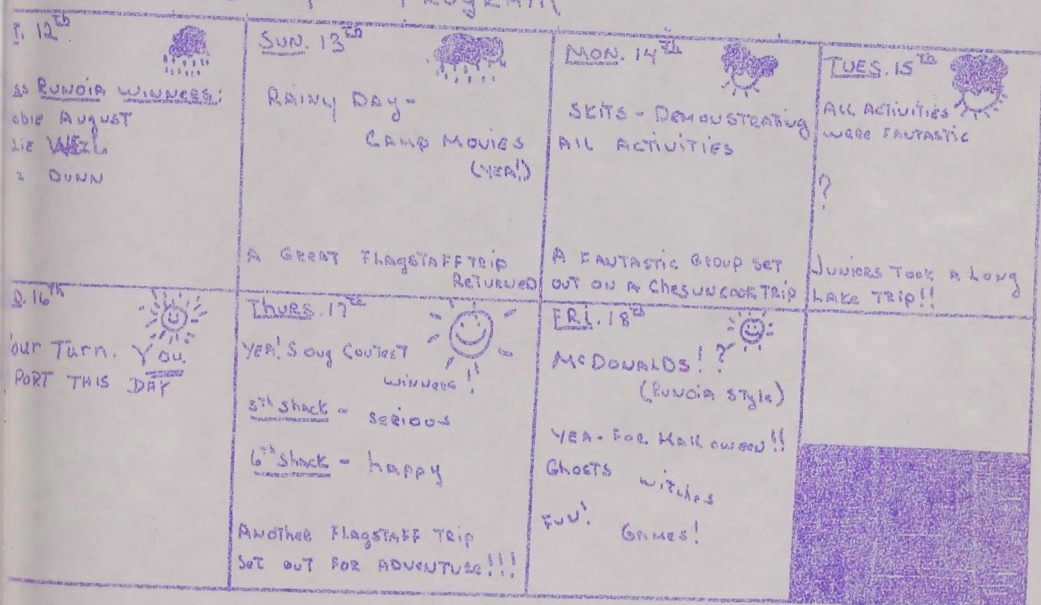 PROGRAM
. 12th
ss RUNOIA WINNERS:
obie AUGUST
sie
z DUNN
SUN. 13th
RAINY DAY-
CAMP MOVIES
(YEA!)
A GREAT FLAGSTAFF TRIP
RETURNED
MON. 14th
SKITS - DEMONSTRATING
All ACTIVITIES
A FANTASTIC GROUP SET
OUT ON A CHESUNCOOK TRIP
TUES. 15th
All ACTIVITIES
WERE FANTASTIC
?
JUNIERS TOOK A LONG
LAKE TRIP!!
D. 16th
our Turn. You
PORT THIS DAY
THURS. 17th
YEA! SONG CONTEST
WINNERS!
5th Shack - SERIOUS
6th Shack - happy
ANOTHER FLAGSTAFF TRIP
SET OUT FOR ADVENTURE!!!
FRI. 18th
McDONALDS!?
(RUNOIA STYLE)
YEA-FOR HALLOWEEN!!
GHOSTS
WITCHES
FUN!
GAMES!